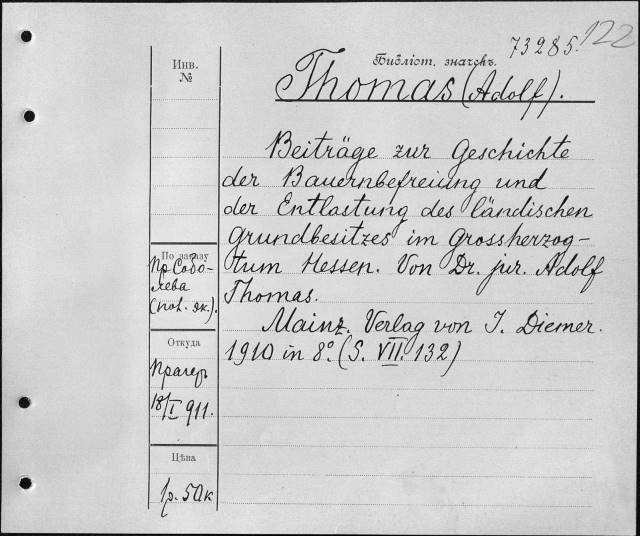 73285. 122
Библіот. значекъ.
Thomas (Adolf).
Инв.
№
Beiträge zur Geschichte
der Bauernbefreiung und
der Entlastung des ländischen
Grundbesitzes im Grossherzog-
tum Hessen. Von Dr. jur. Adolf
Thomas.
Mainz. Verlag von J. Diemer.
1910 in 8º. (S. VII. 132)
По заказу
Пр. Собо-
лева
(пол. эк.).
Откуда
Прагеръ
18/I 911.
Цѣна
1р. 50к